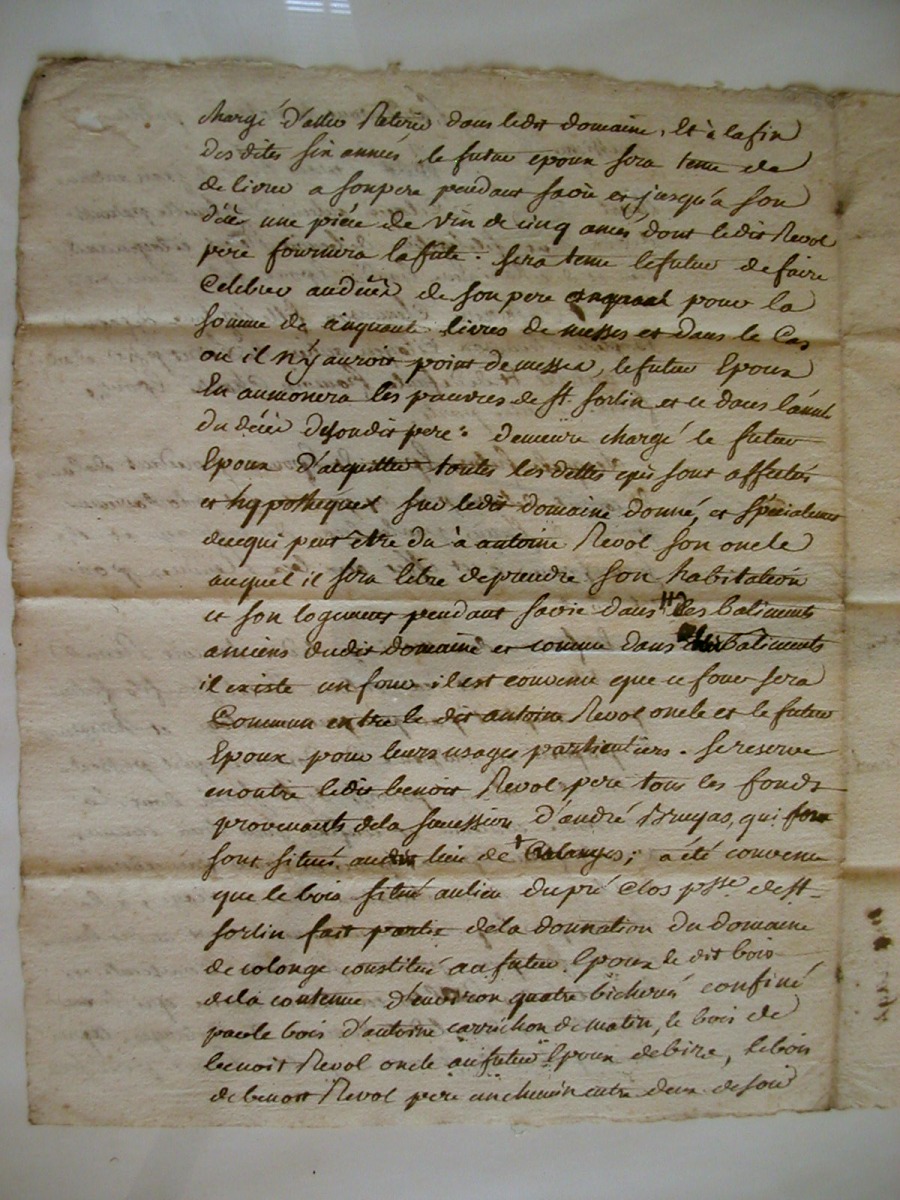 chargé d'aller Retirée dans ledit domaine, Et à la fin
des dites six années le futur epoux sera tenu de
de livrer a son pere pendant sa vie et jusqu'a son
décè une pièce de vin de cinq anées dont ledit Revol
pere fournira la fute. sera tenu le futur de faire
Celebrer au décè de son pere pour la
somme de cinquante livres de messes et dans le Cas
ou il n'y auroit point de messes, le futur Epoux
En aumonera les pauvres de St. Sorlin et ce dans l'année
du décès desondit pere: demeure chargé le futur
Epoux d'acquitter touttes les dettes qui sont affectés
et hypothequet sur ledit domaine donné, et specialement
de ce qui peut être du à antoine Revol son oncle
auquel il sera libre de prendre son habitation
et son logement pendant sa vie dans les batiments
anciens dudit domaine et comme dans Batiments
il existe un four il est convenu que ce four sera
Commun entre le dit antoine Revol oncle et le futur
Epoux pour leurs usages particuliers. Se reserve
en outre ledit benoit Revol pere tous les fonds
provenants de la succession d'andré Bruyas, qui
sont situés audit lieu de ; a été convenu
que le bois situé au lieu du pré Clos psse de St
sorlin fait partie de la donnation du domaine
de colonge constitué au futur Epoux le dit bois
de la contenue d'environ quatre bicherés confiné
par le bois d'antoine carrichon de matin, le bois de
benoit Revol oncle au futur Epoux de bize, le bois
de benoit Revol pere un chemin entre deux de soir